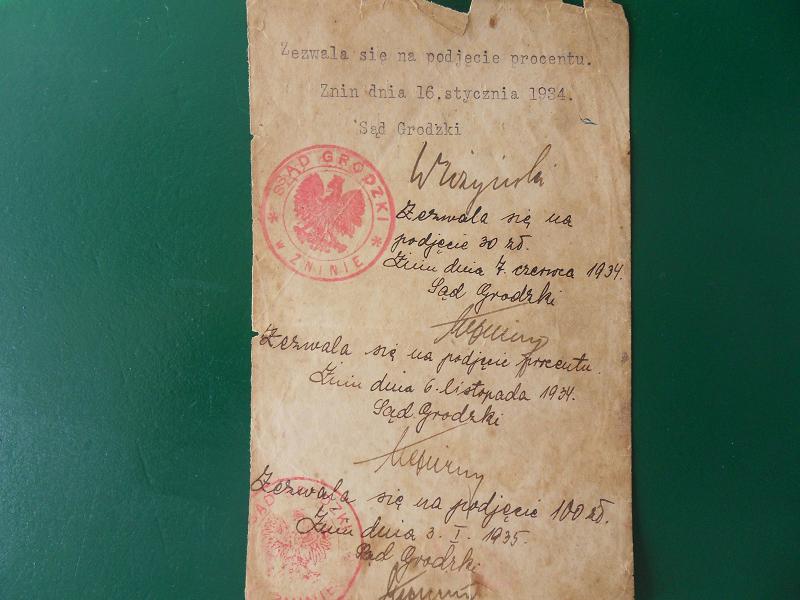 Zezwala się na podjęcie procentu.
Znin dnia 16.stycznia 1934.
Sąd Grodzki
SĄD GRODZKI
W ŻNINIE
Zezwala się na
podjęcie 30 zł.
Żnin dnia 7. czerwca 1934.
Sąd Grodzki
Zezwala się na podjęcie procentu.
Żnin dnia 6. listopada 1934.
Sąd Grodzki
Zezwala się na podjęcie 100 zł.
Żnin dnia 3. I. 1935.
Sąd Grodzki